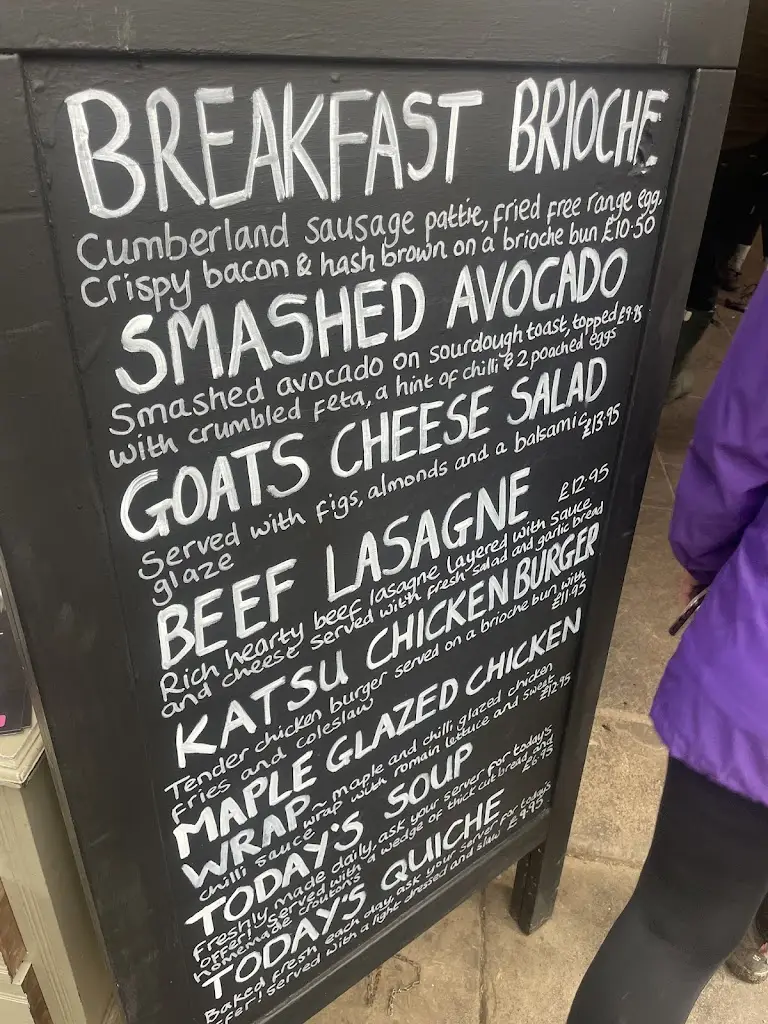 BREAKFAST BRIOCHE
Cumberland sausage pattie, fried free range egg,
Crispy bacon & hash brown on a brioche bun £10.50
SMASHED AVOCADO
Smashed avocado on sourdough toast, topped £9.95
with crumbled feta, a hint of chilli & 2 poached eggs
GOATS CHEESE SALAD
Served with figs, almonds and a balsamic £13.95
glaze
BEEF LASAGNE £12.95
Rich hearty beef lasagne layered with sauce
and cheese served with fresh salad and garlic bread
KATSU CHICKEN BURGER
Tender chicken burger served on a brioche bun with £11.95
fries and coleslaw
MAPLE GLAZED CHICKEN
WRAP ~ maple and chilli glazed chicken
chilli sauce wrap with romain lettuce and sweet £12.95
TODAY'S SOUP
Freshly made daily, ask your server for today's
offer! Served with a wedge of thick cut bread and £6.95
homemade croutons
TODAY'S QUICHE
Baked fresh each day, ask your server for today's
offer! Served with a light dressed and slaw £9.95